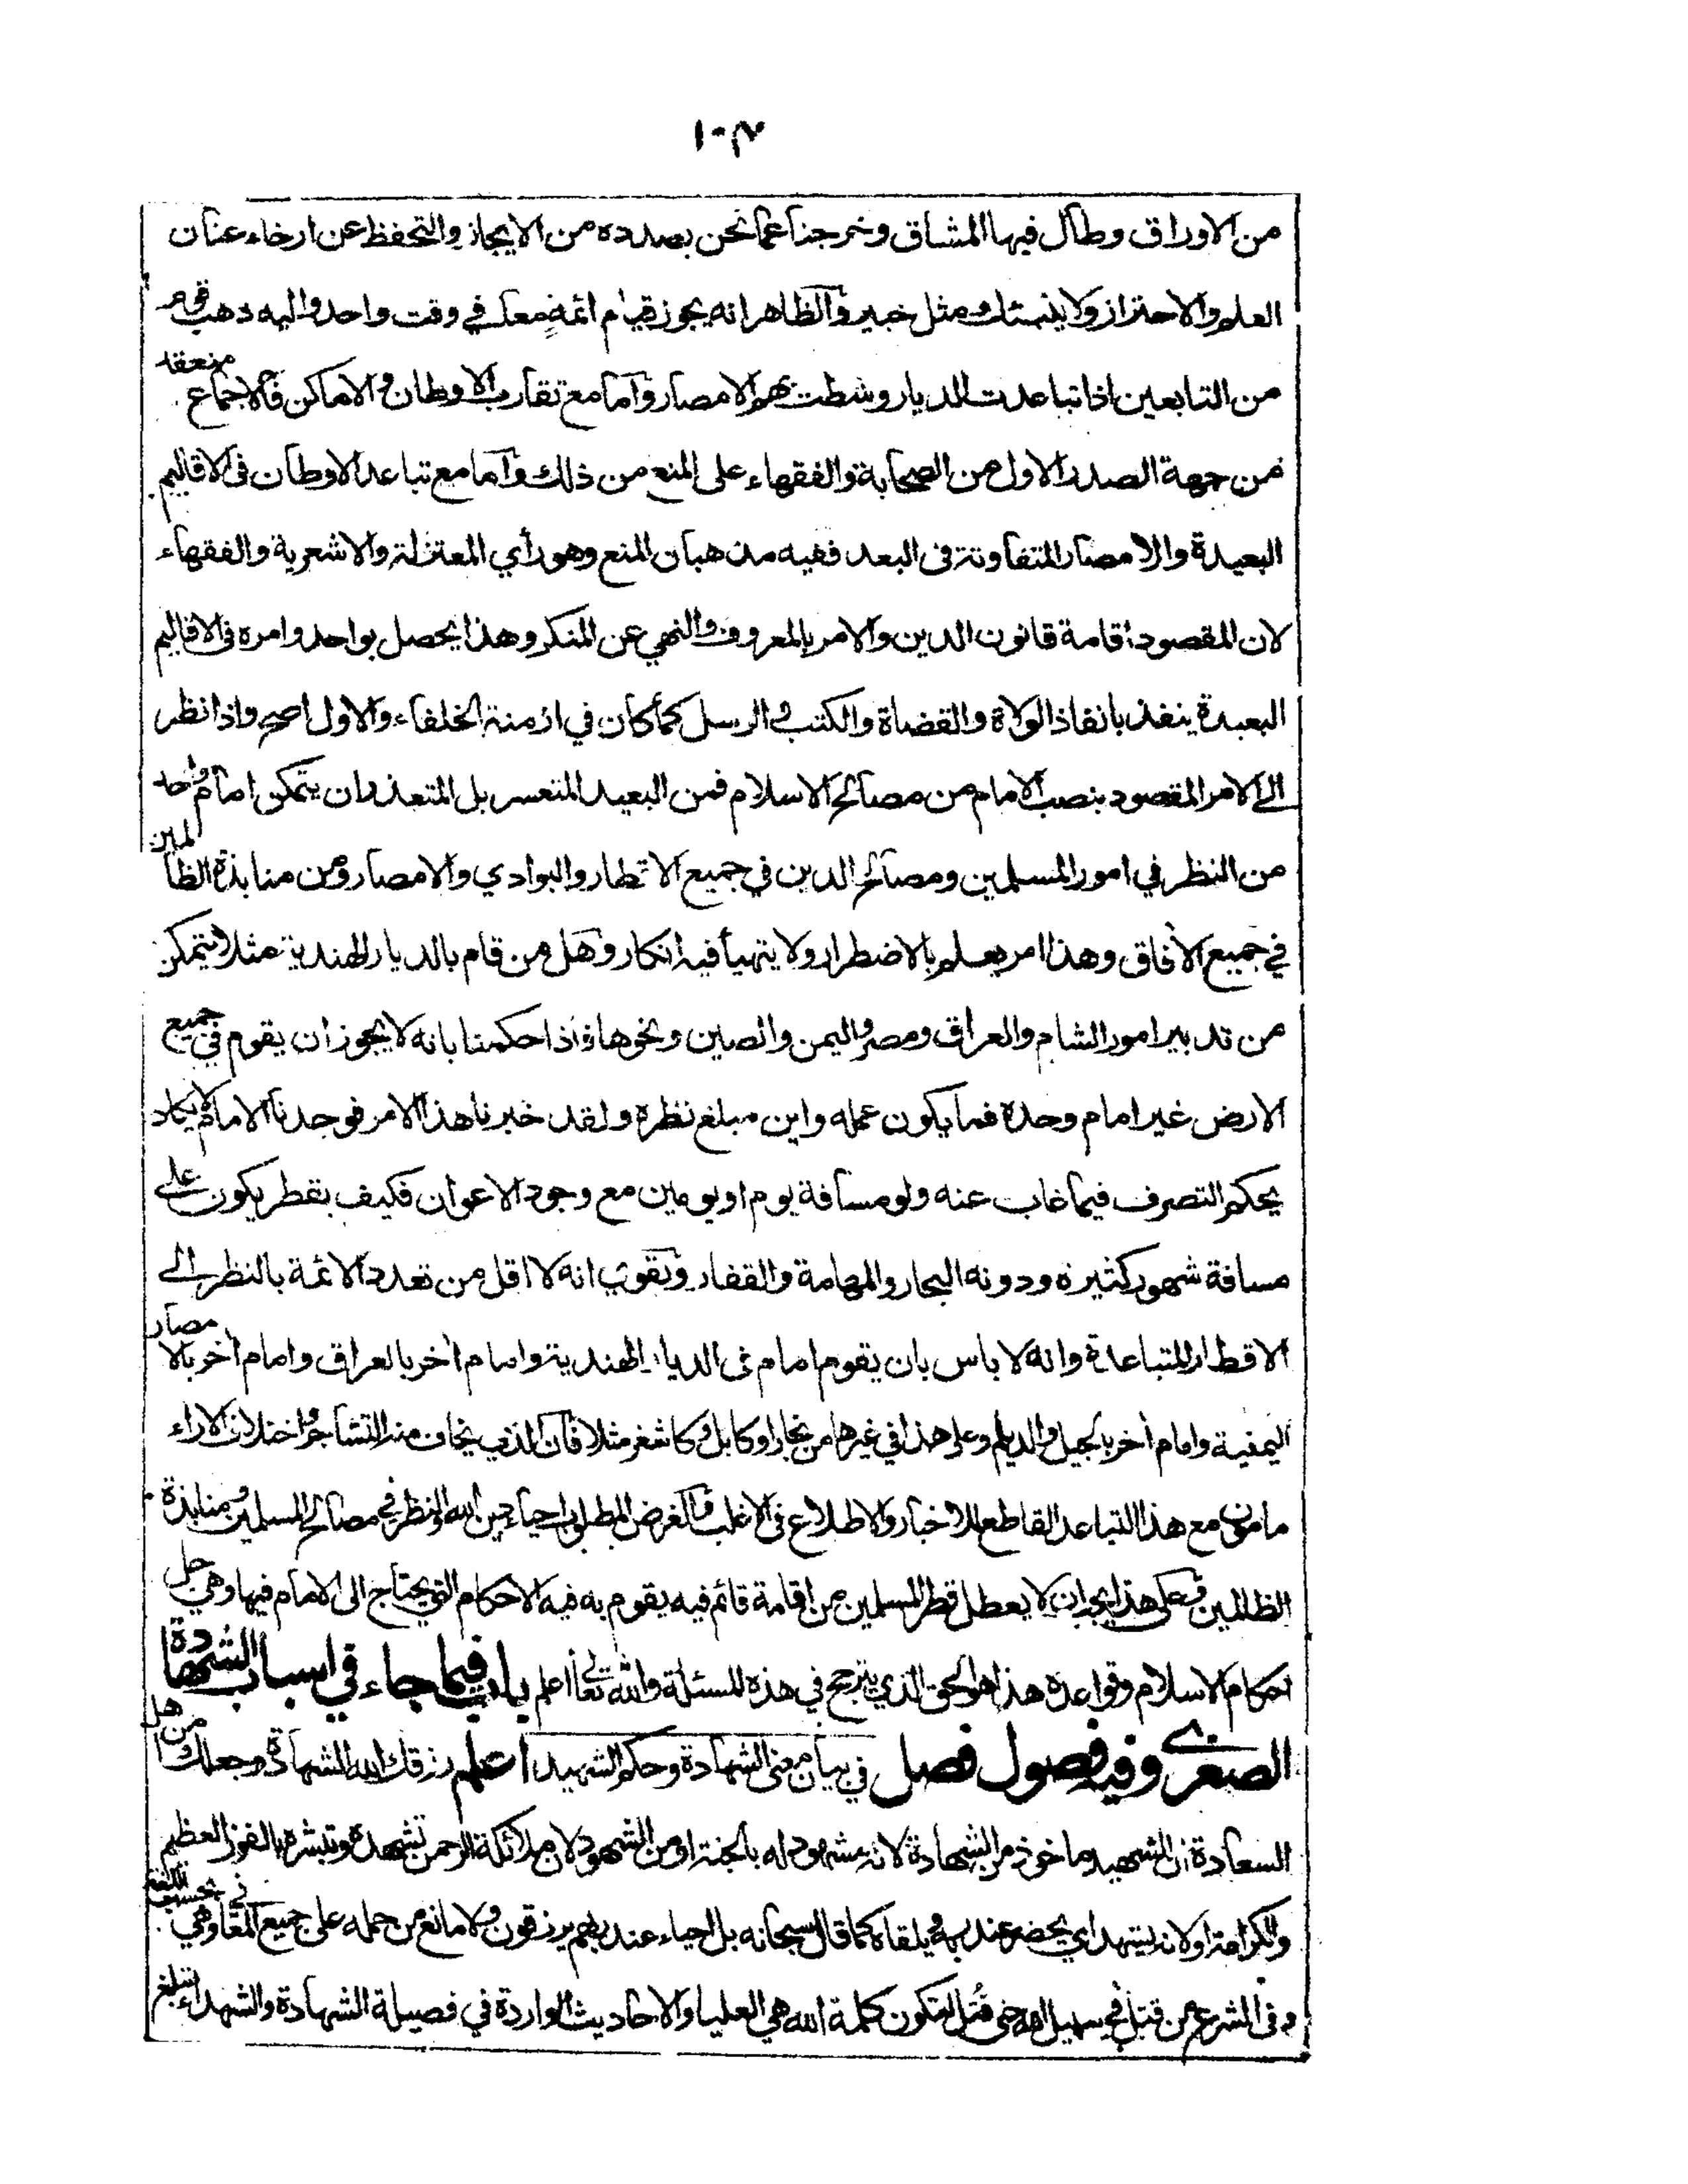 ١٠٣
من الاوراق وطال فيها المشاق وخرجنا عما نحن بصدده من الايجاز والتحفظ عن ارخاء عنان
العلم والاحتراز ولا ينبئك مثل خبير والظاهر انه يجوز قيام ائمة معا في وقت واحد واليه ذهب قوم
من التابعين اذا تباعدت الديار وشطت بهم الامصار واما مع تقارب الاوطان والاماكن فالاجماع منعقد
من جهة الصدر الاول من الصحابة والفقهاء على المنع من ذلك واما مع تباعد الاوطان فى الاقاليم
البعيدة والامصار المتفاوتة فى البعد ففيه مذهبان المنع وهو رأي المعتزلة والاشعرية والفقهاء
لان المقصود اقامة قانون الدين والامر بالمعروف والنهي عن المنكر وهذا يحصل بواحد وامره فى الاقاليم
البعيدة ينفذ بانفاذ الولاة والقضاة والكتب والرسل كما كان في ازمنة الخلفاء والاول اصح واذا نظر
الى الامر المقصود بنصب الامام من مصالح الاسلام فمن البعيد المتعسر بل المتعذر ان يتمكن امام واحد
من النظر في امور المسلمين ومصالح الدين في جميع الاقطار والبوادي والامصار ومن منابذة الظالمين
في جميع الآفاق وهذا امر يعلم بالاضطرار ولا يتهيأ فيه انكار وهل من قام بالديار الهندية مثلا يتمكن
من تدبير امور الشام والعراق ومصر واليمن والصين ونحوها فاذا حكمنا بانه لا يجوز ان يقوم في جميع
الارض غير امام وحده فما يكون عمله واين مبلغ نظره ولقد خبرنا هذا الامر فوجدنا الامام لا يكاد
يحكم التصرف فيما غاب عنه ولو مسافة يوم او يومين مع وجود الاعوان فكيف بقطر يكون على
مسافة شهور كثيرة ودونه البحار والمهامة والقفار ونقول انه لا اقل من تعدد الائمة بالنظر الى
الاقطار المتباعدة وانه لا باس بان يقوم امام فى الديار الهندية وامام آخر بالعراق وامام آخر بالامصار
اليمنية وامام آخر بالجيل والديلم وعلى هذا في غيرها من بخارا وكابل وكاشغر مثلا فان الذي يخاف منه التشاجر واختلاف الاراء
مامون مع هذا التباعد القاطع للاخبار والاطلاع فى الاغلب والغرض المطلوب احياء دين الله والنظر في مصالح المسلمين ومنابذة
الظالمين فعلى هذا يجب ان لا يعطل قطر المسلمين من اقامة قائم فيه يقوم به فيه الاحكام التي يحتاج الى الامام فيها وهي جل
احكام الاسلام وقواعده هذا هو الحق الذي يترجح في هذه المسئلة والله تعالى اعلم باب فيما جاء في اسباب الشهادة
الصغرى وفيه فصول فصل في بيان معنى الشهادة وحكم الشهيد اعلم رزقك الله الشهادة وجعلك من اهل
السعادة ان الشهيد ماخوذ من الشهادة لانه مشهود له بالجنة او من الشهود لان ملائكة الرحمن تشهده وتبشره بالفوز العظيم
والكرامة او لانه يشهد اي يحضر عند ربه ويلقاه كما قال سبحانه بل احياء عند ربهم يرزقون ولا مانع من حمله على جميع المعاني وهي بحسب اللغة
وفى الشرع من قتل في سبيل الله حتى قتل لتكون كلمة الله هي العليا والاحاديث الواردة في فضيلة الشهادة والشهداء تبلغ